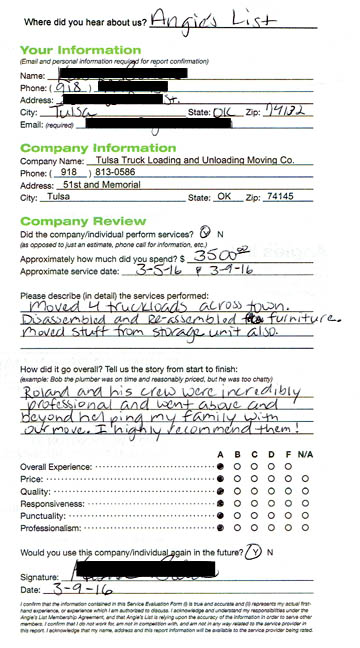 Where did you hear about us? Angie's List
Your Information
(Email and personal information required for report confirmation)
Name:
Phone: ( 918 )
Address: St.
City: Tulsa State: OK Zip:
Email: (required)
Company Information
Company Name: Tulsa Truck Loading and Unloading Moving Co.
Phone: ( 918 ) 813-0586
Address: 51st and Memorial
City: Tulsa State: OK Zip: 74145
Company Review
Did the company/individual perform services? Y N
(as opposed to just an estimate, phone call for information, etc.)
Approximately how much did you spend? $ 3500.00
Approximate service date: 3-5-16 & 3-9-16
Please describe (in detail) the services performed:
Moved 4 truckloads across town.
Disassembled and re-assembled furniture.
Moved stuff from storage unit also.
How did it go overall? Tell us the story from start to finish:
(example: Bob the plumber was on time and reasonably priced, but he was too chatty)
Roland and his crew were incredibly
professional and went above and
beyond helping my family with
our move. I highly recommend them!
A B C D F N/A
Overall Experience:
Price:
Quality:
Responsiveness:
Punctuality:
Professionalism:
Would you use this company/individual again in the future? Y N
Signature:
Date: 3-9-16
I confirm that the information contained in this Service Evaluation Form (i) is true and accurate and (ii) represents my actual first-
hand experience, or experience which I am authorized to discuss. I acknowledge and understand my responsibilities under the
Angie's List Membership Agreement, and that Angie's List is relying upon the accuracy of the information in order to serve other
members. I confirm that I do not work for, am not in competition with, and am not in any way related to the service provider in
this report. I acknowledge that my name, address and this report information will be available to the service provider being rated.